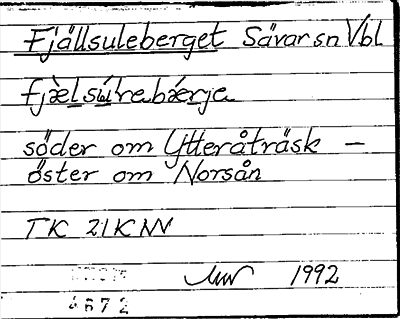 Fjällsuleberget Sävar sn Vbl
fjæ̀lsú'rebǽrje
söder om Ytteråträsk –
öster om Norsån
TK 21K NV
1992
4672